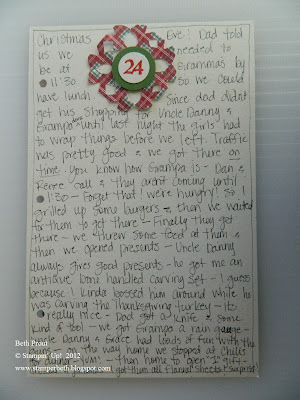 Christmas Eve! Dad told
24
us we needed to
be at Grammas by
11:30 so we could
have lunch since dad didn't
get his shopping for Uncle Danny &
Grampa done until last night the girls had
to wrap things before we left. Traffic
was pretty good & we got there on
time. You know how Grampa is - Dan &
Renee call & they arent coming until
1:30 - Forget that! We're hungry! So I
grilled up some burgers & then we waited
for them to get there - Finally they get
there - we threw some food at them &
then we opened presents - Uncle Danny
always gives good presents - he got me an
antique bone handled carving set - I guess
because I kinda bossed him around while he
was carving the Thanksgiving turkey - its
really nice - Dad got a knife & some
kind of tool - we got Grampa a rain gauge -
Uncle Danny & Grace had loads of fun with the
on the way home we stopped at Chilis
for dinner - YUM! - then home to open 1 gift -
got them all flannel sheets! Surprise!
Beth Prout
© Stampin' Up! 2012
www.stamperbeth.blogspot.com